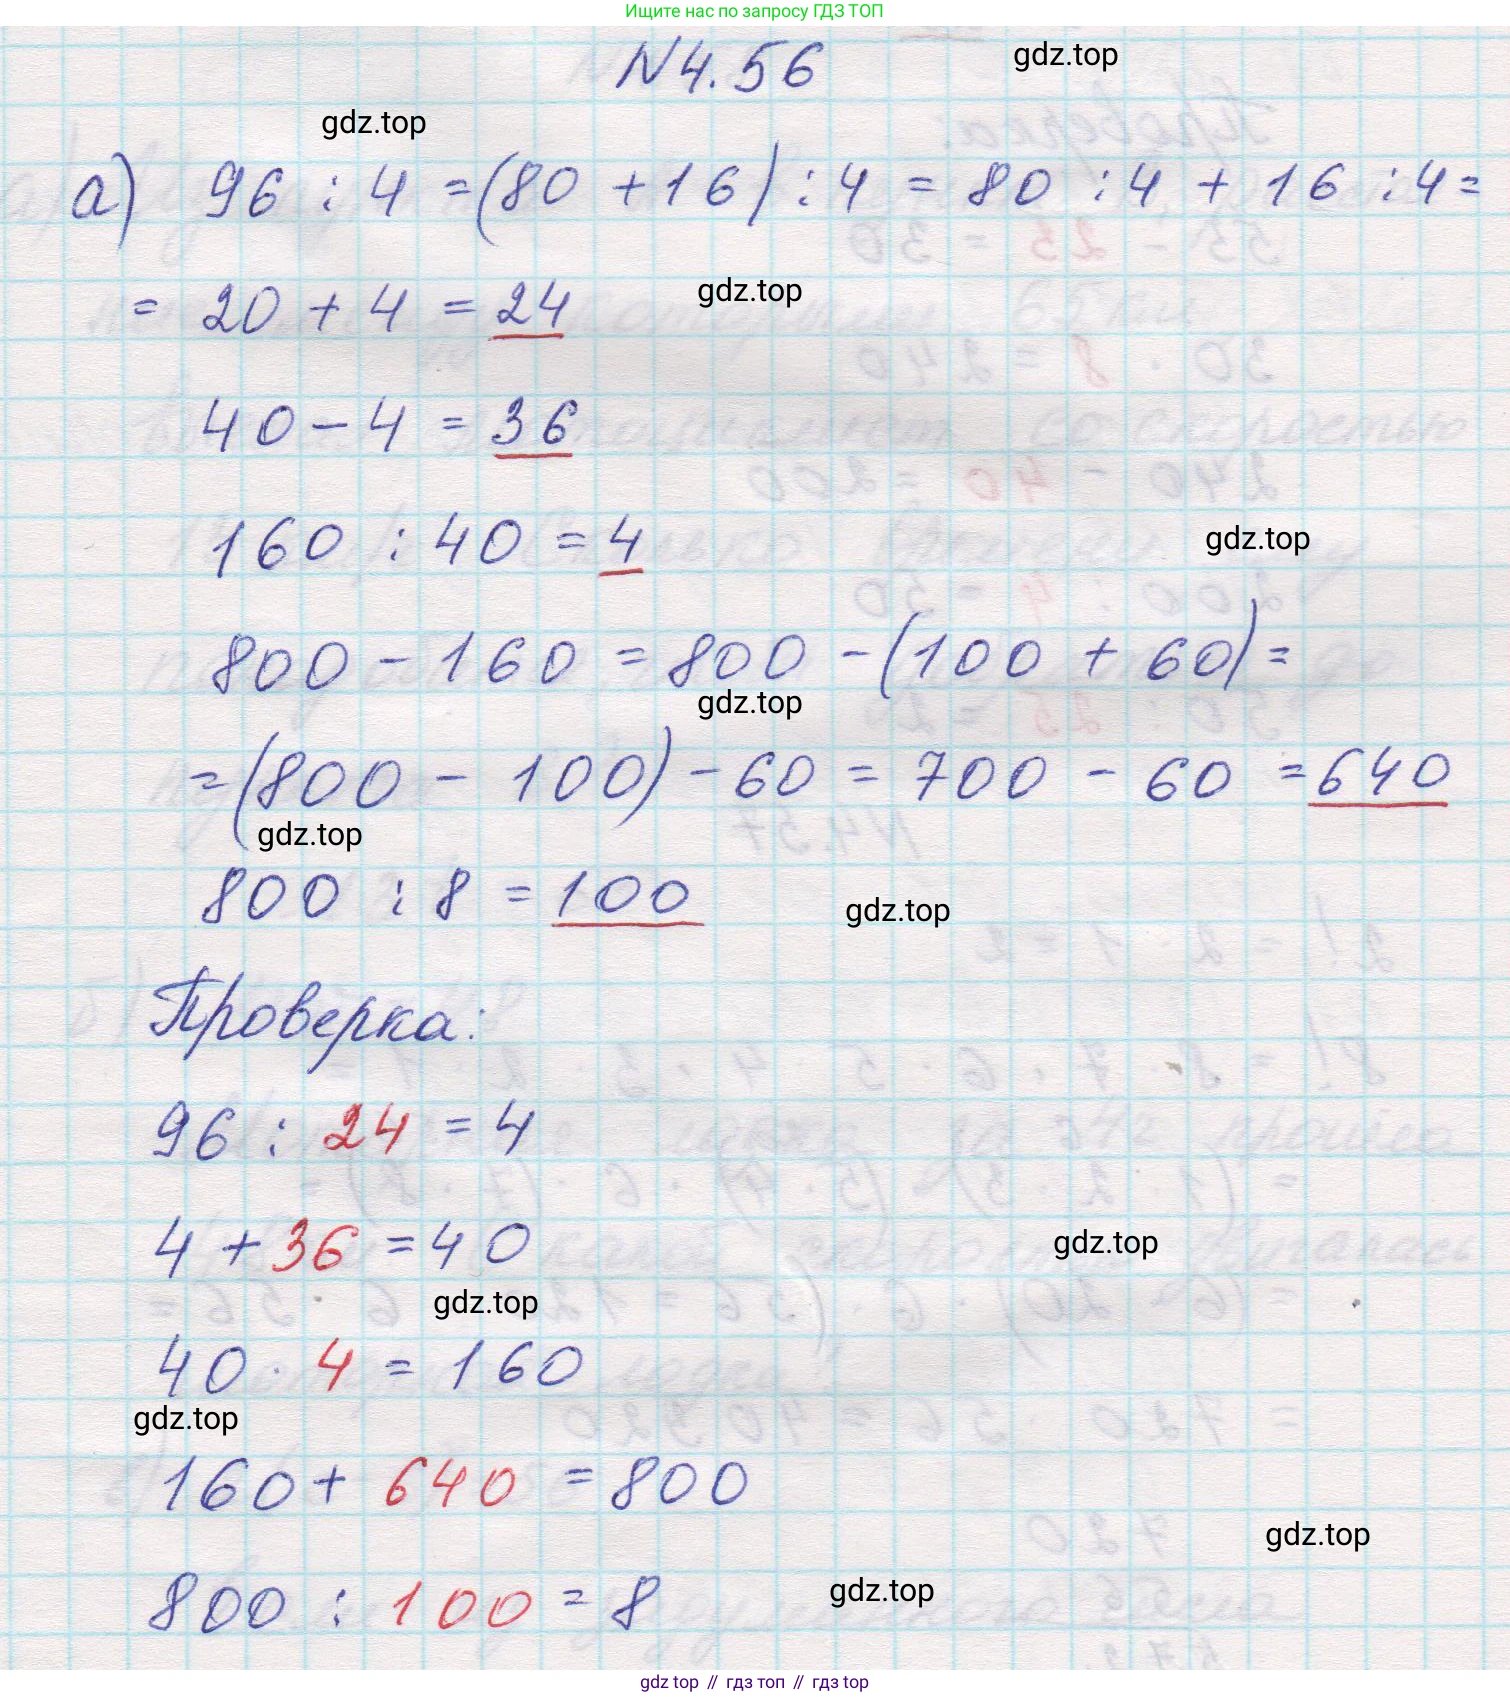 Ищите нас по запросу ГДЗ ТОП
N 4.56
gdz.top
gdz.top
а) 96 : 4 = (80 + 16) : 4 = 80 : 4 + 16 : 4 =
= 20 + 4 = 24
gdz.top
40 - 4 = 36
160 : 40 = 4
gdz.top
800 - 160 = 800 - (100 + 60) =
gdz.top
= (800 - 100) - 60 = 700 - 60 = 640
gdz.top
800 : 8 = 100
gdz.top
Проверка:
96 : 24 = 4
4 + 36 = 40
gdz.top
gdz.top
40 · 4 = 160
gdz.top
160 + 640 = 800
gdz.top
800 : 100 = 8
gdz.top
gdz top // гдз топ // гдз top